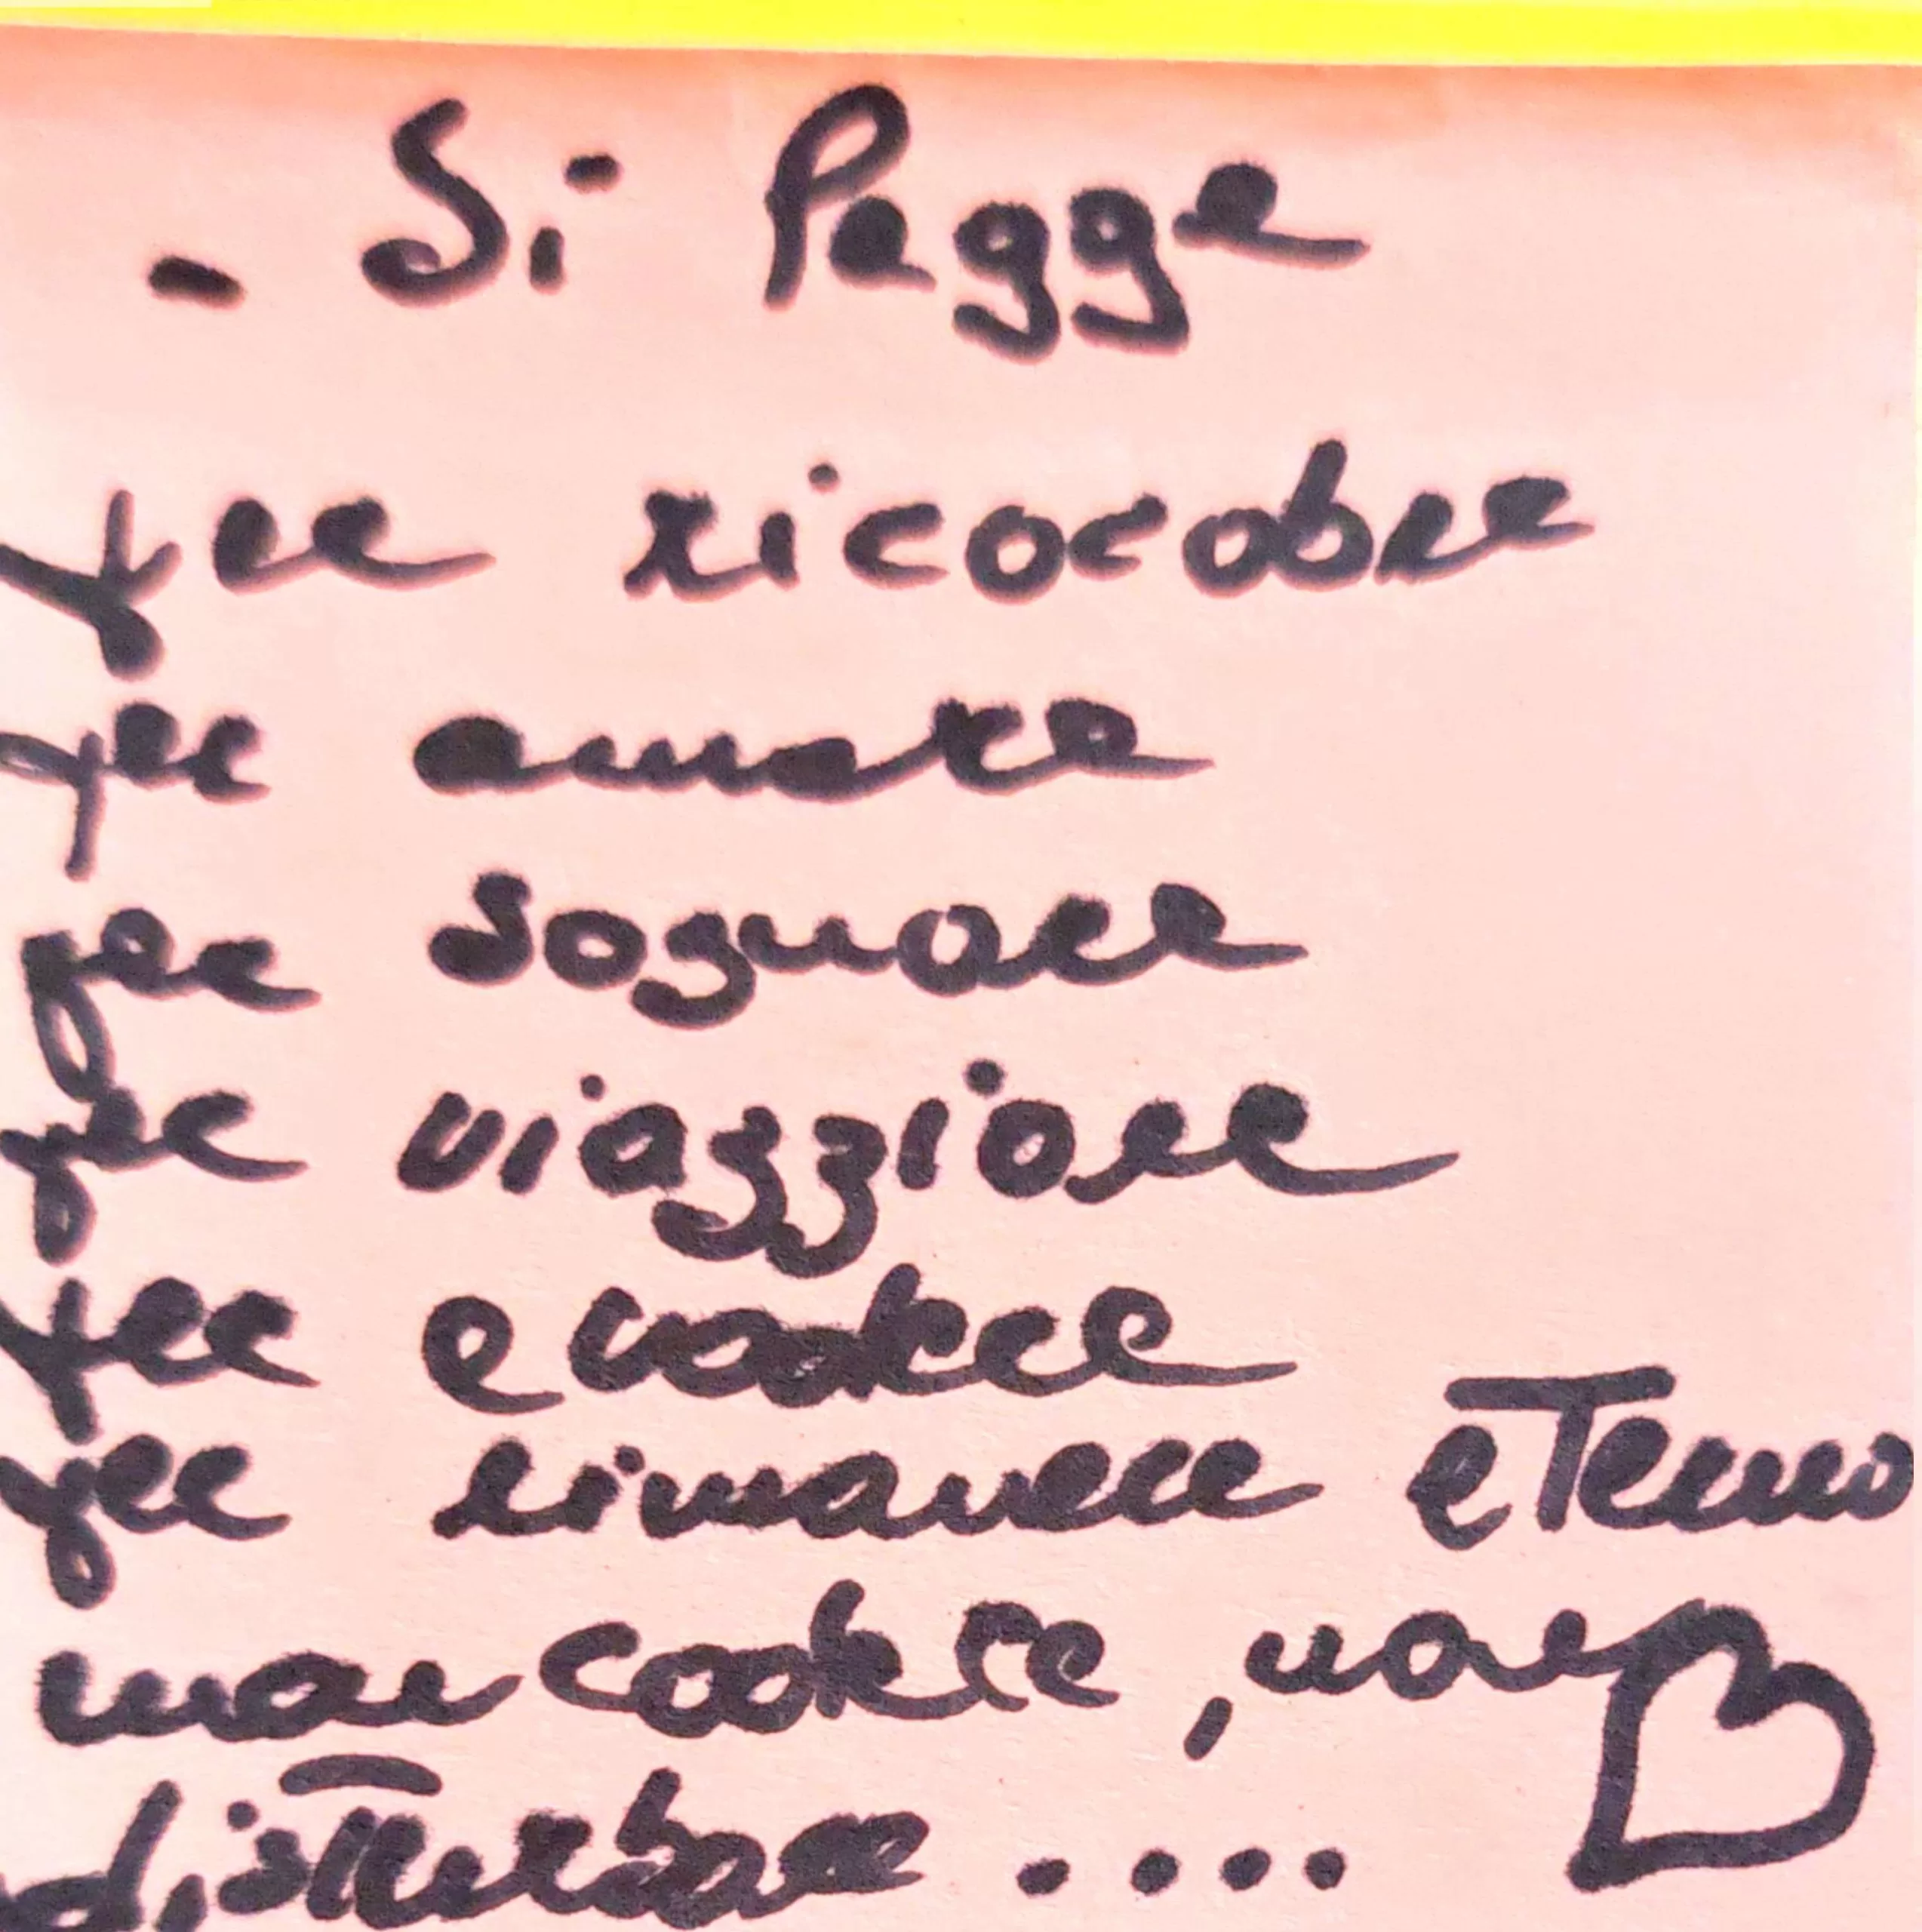 - Si Legge
per ricordare
per amare
per sognare
per viaggiare
per evadere
per rimanere eterno
, non
disturbare ....